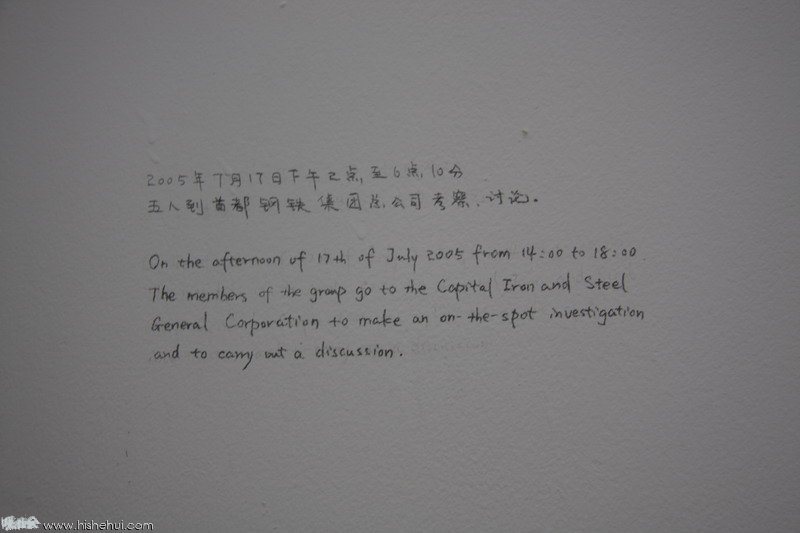 2005年7月17日下午2点至6点10分
五人到首都钢铁集团总公司考察、讨论。
On the afternoon of 17th of July 2005 from 14:00 to 18:00
The members of the group go to the Capital Iron and Steel
General Corporation to make an on-the-spot investigation
and to carry out a discussion.
www.hishehui.com